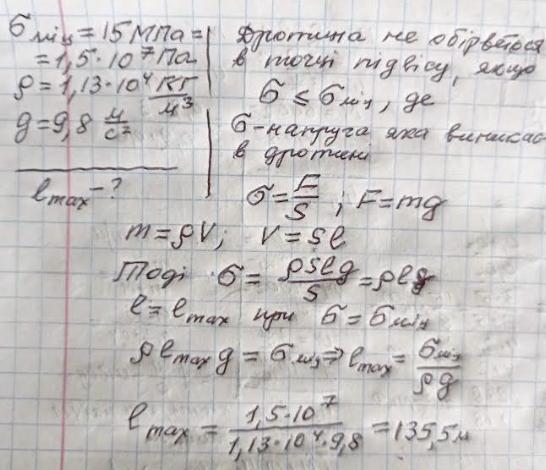 σміц = 15 МПа =
= 1,5·10⁷ Па
ρ = 1,13·10⁴ кг/м³
g = 9,8 м/с²
lmax - ?
Дротина не обірветься
в точці підвісу, якщо
σ ≤ σміц, де
σ - напруга яка виникає
в дротині
σ = F/S ; F = mg
m = ρV; V = Sl
Тоді σ = ρSlg/S = ρlg
l = lmax при σ = σміц
ρ lmax g = σміц ⇒ lmax = σміц/ρg
lmax = 1,5·10⁷/1,13·10⁴·9,8 = 135,5 м